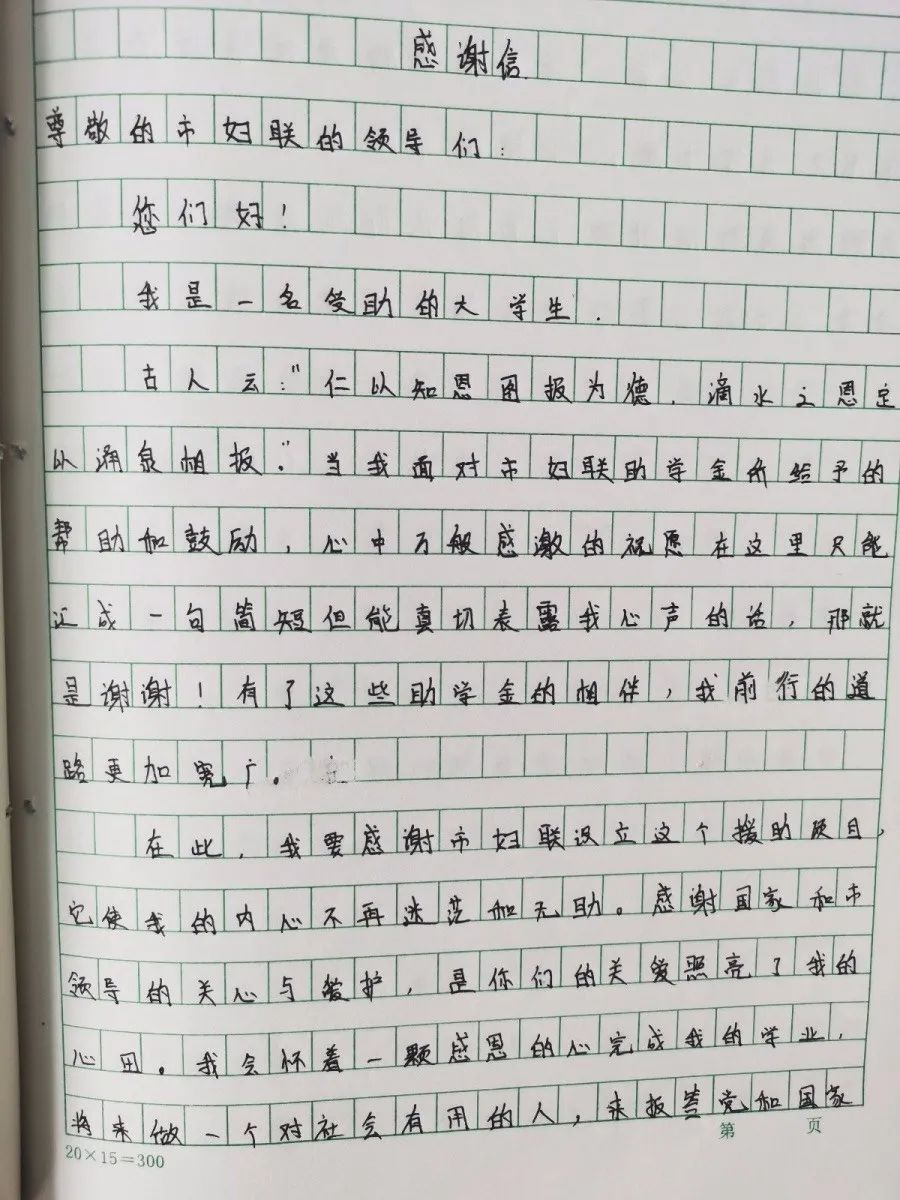 感谢信
尊敬的市妇联的领导们：
您们好！
我是一名受助的大学生.
古人云："仁以知恩图报为德，滴水之恩定
以涌泉相报。"当我面对市妇联助学金所给予的
帮助和鼓励，心中万般感激的祝愿在这里只能
汇成一句简短但能真切表露我心声的话，那就
是谢谢！有了这些助学金的相伴，我前行的道
路更加宽广。
在此，我要感谢市妇联设立这个援助项目，
它使我的内心不再迷茫和无助。感谢国家和市
领导的关心与爱护，是你们的关爱照亮了我的
心田。我会怀着一颗感恩的心完成我的学业，
将来做一个对社会有用的人，来报答党和国家
20×15=300 第 页